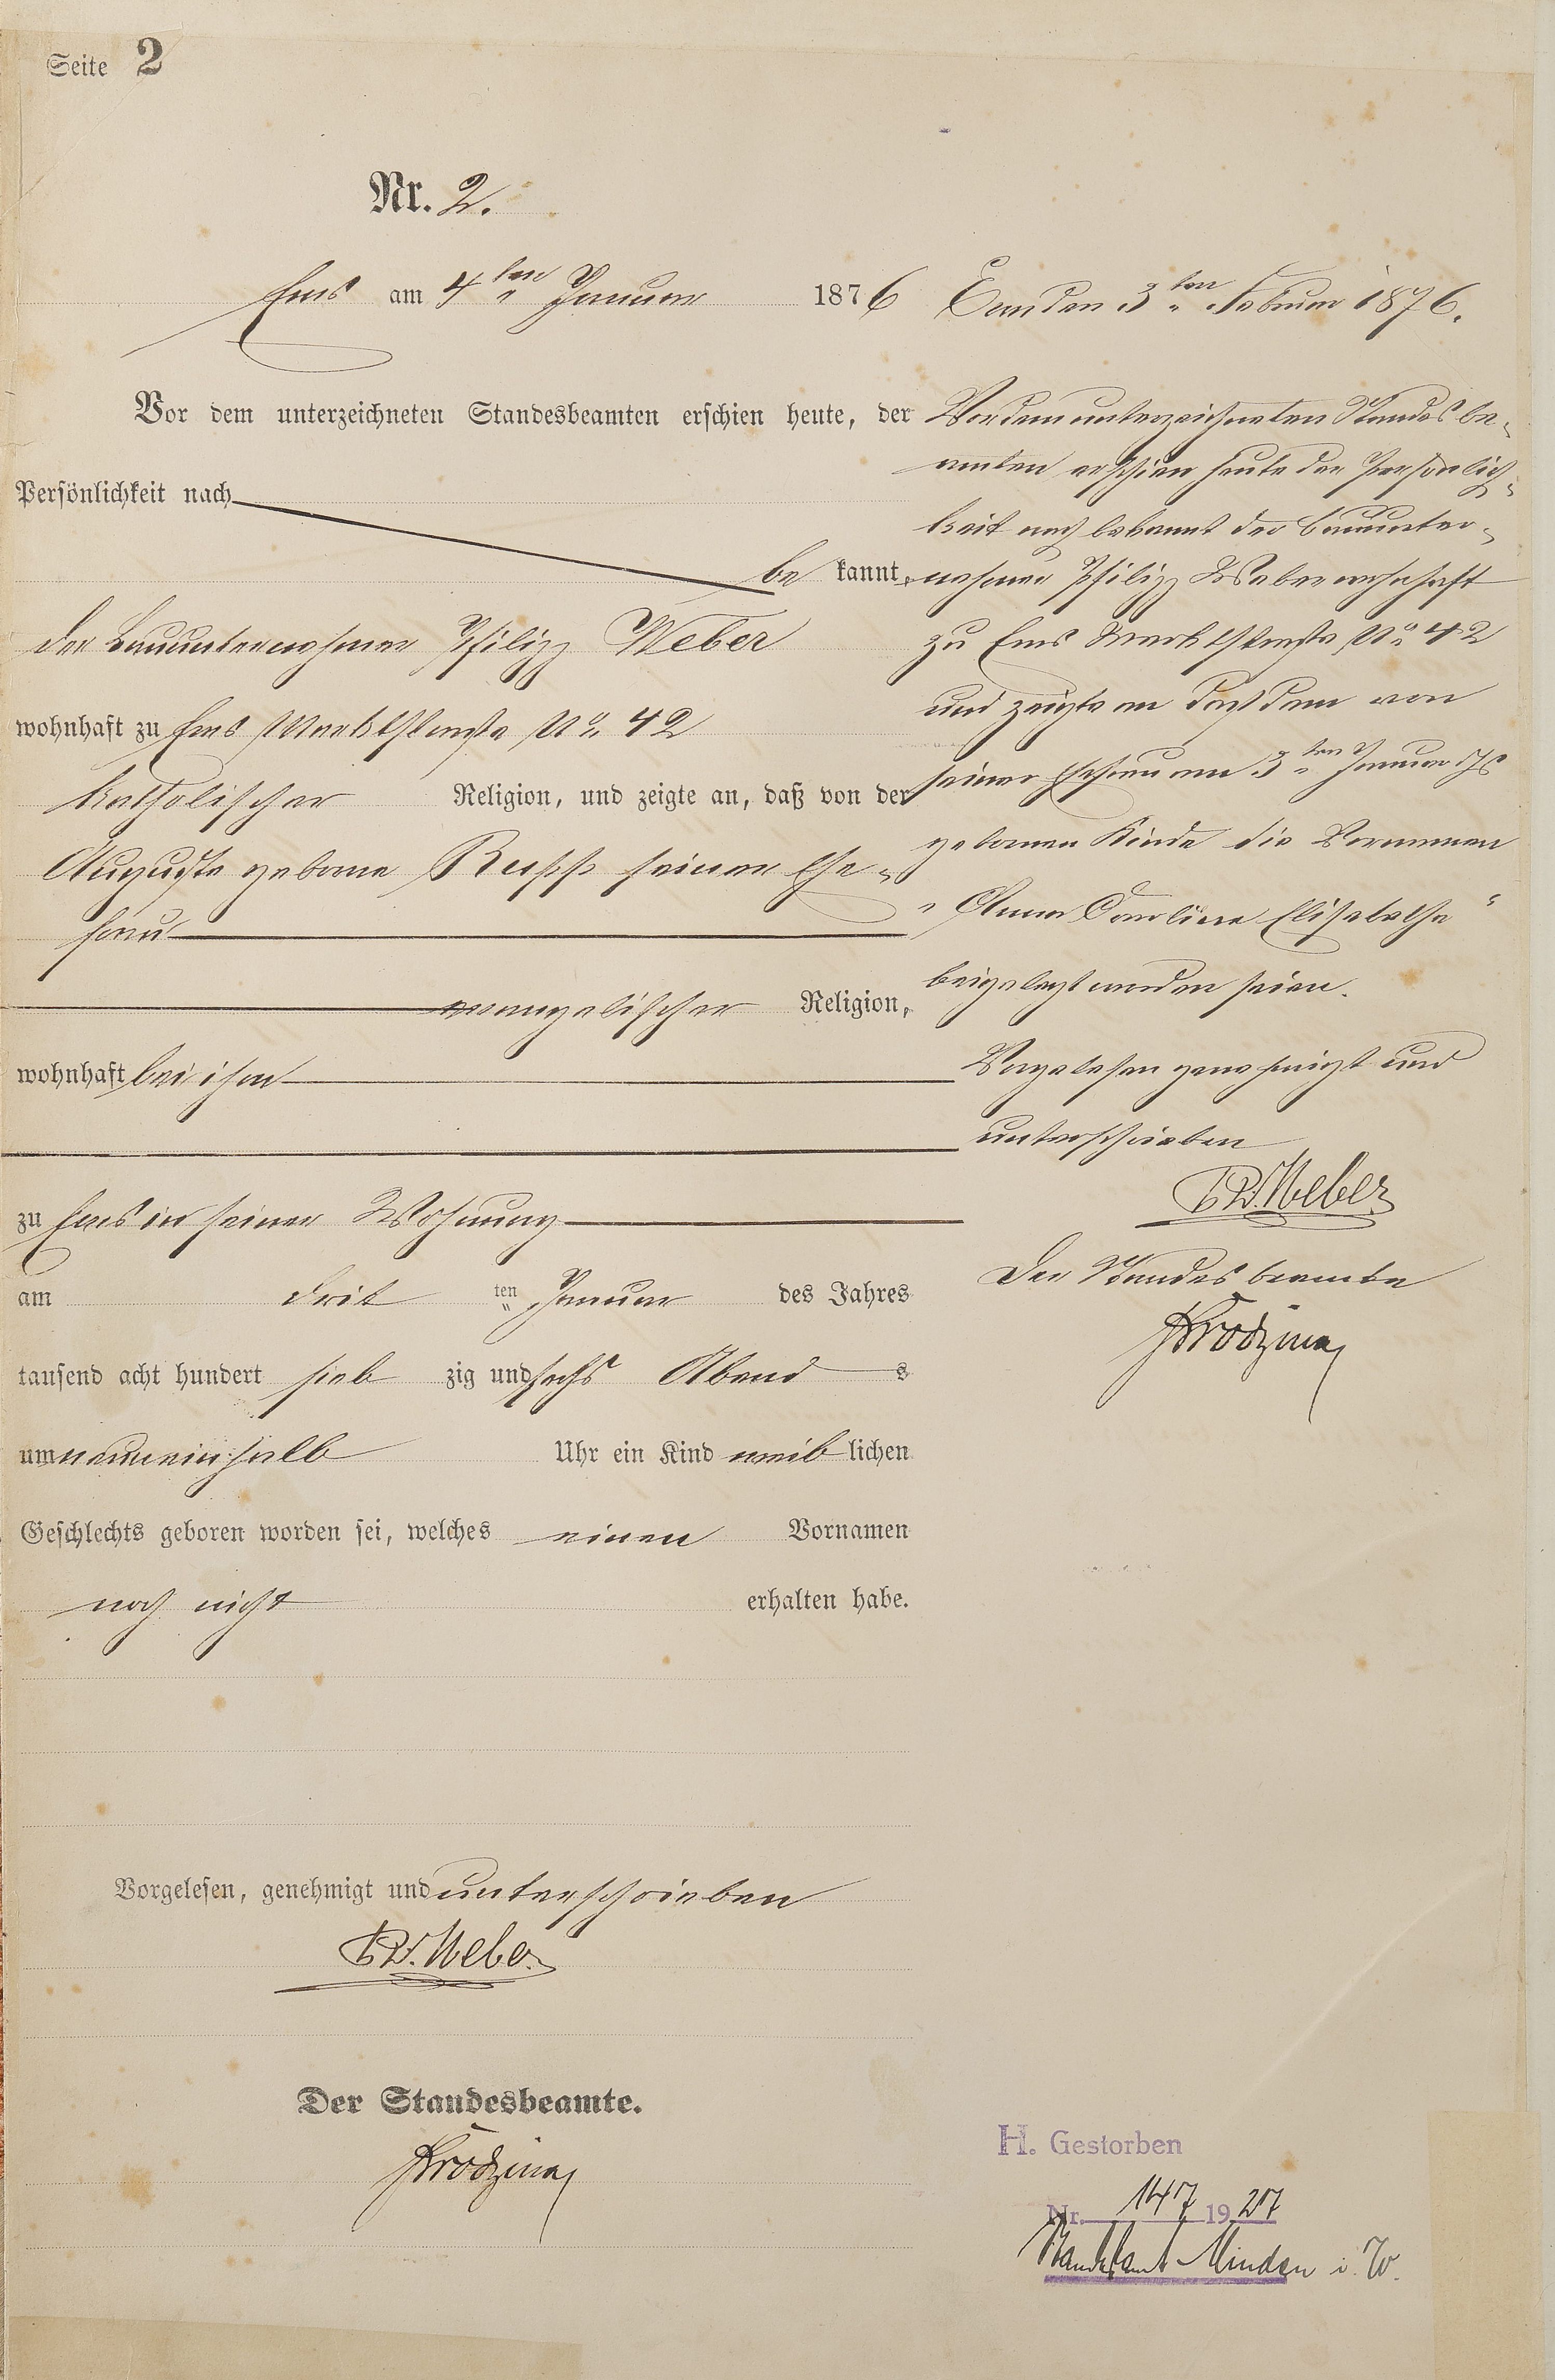 Seite 2
Nr. 2.
Ems am 4ten Januar 1876
Vor dem unterzeichneten Standesbeamten erschien heute, der
Persönlichkeit nach
be kannt,
der Bauunternehmer Philipp Weber
wohnhaft zu Ems Marktstraße No 42
katholischer Religion, und zeigte an, daß von der
Auguste geborne Rupp seiner Ehe-
frau
evangelischer Religion,
wohnhaft bei ihm
zu Ems in seiner Wohnung
am drit ten Januar des Jahres
tausend acht hundert sieb zig und sechs Abend s
um neuneinhalb Uhr ein Kind weib lichen
Geschlechts geboren worden sei, welches einen Vornamen
noch nicht erhalten habe.
Vorgelesen, genehmigt und unterschrieben
Ph. Weber
Der Standesbeamte.
Ems den 3ten Februar 1876.
Vor dem unterzeichneten Standesbe-
amten erschien heute der Persönlich-
keit nach bekannt der Bauunter-
nehmer Philipp Weber wohnhaft
zu Ems Marktstraße No 42
und zeigte an daß dem von
seiner Ehefrau am 3ten Januar djs
gebornen Kinde die Vornamen
"Anna Caroline Elisabethe"
beigelegt worden seien.
Vorgelesen genehmigt und
unterschrieben
Ph. Weber
Der Standesbeamte
H. Gestorben
Nr. 147 1927
Standesamt Minden i. W.